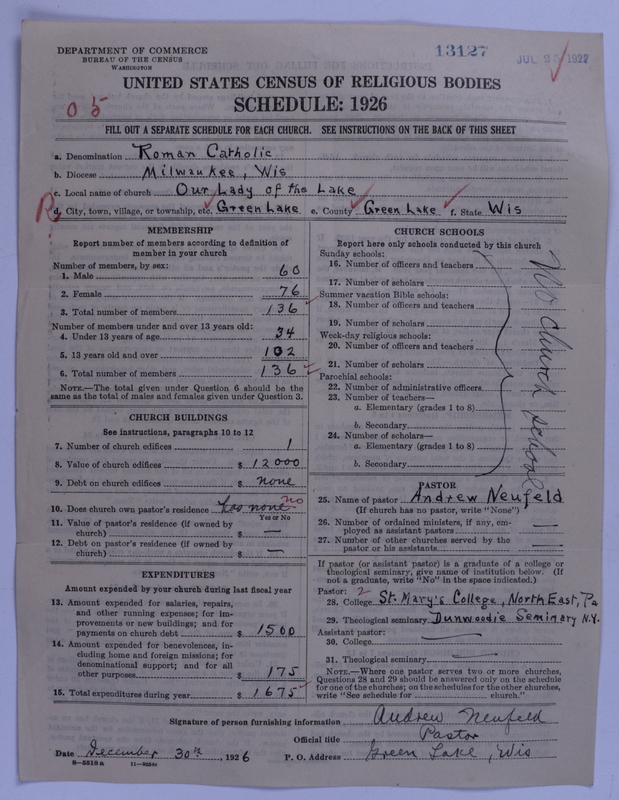 DEPARTMENT OF COMMERCE
BUREAU OF THE CENSUS
WASHINGTON
13127
1927
UNITED STATES CENSUS OF RELIGIOUS BODIES
SCHEDULE: 1926
05
FILL OUT A SEPARATE SCHEDULE FOR EACH CHURCH. SEE INSTRUCTIONS ON THE BACK OF THIS SHEET
a. Denomination Roman Catholic
b. Diocese Milwaukee, Wis
c. Local name of church Our Lady of the Lake
R
d. City, town, village, or township, etc. Green Lake e. County Green Lake f. State Wis
MEMBERSHIP
Report number of members according to definition of member in your church
Number of members, by sex:
1. Male 60
2. Female 76
3. Total number of members 136
Number of members under and over 13 years old:
4. Under 13 years of age 34
5. 13 years old and over 102
6. Total number of members 136
NOTE.—The total given under Question 6 should be
same as the total of males and females given under Question 3.
CHURCH BUILDINGS
See instructions, paragraphs 10 to 12
7. Number of church edifices 1
8. Value of church edifices $ 12000
9. Debt on church edifices $ none
10. Does church own pastor's residence has none no
Yes or No
11. Value of pastor's residence (if owned by
church) $ —
12. Debt on pastor's residence (if owned by
church) $ —
EXPENDITURES
Amount expended by your church during last fiscal year
13. Amount expended for salaries, repairs,
and other running expenses; for im-
provements or new buildings; and for
payments on church debt $ 1500
14. Amount expended for benevolences, in-
cluding home and foreign missions; for
denominational support; and for all
other purposes $ 175
15. Total expenditures during year $ 1675
CHURCH SCHOOLS
Report here only schools conducted by this church
Sunday schools:
16. Number of officers and teachers
17. Number of scholars
Summer vacation Bible schools:
18. Number of officers and teachers
19. Number of scholars
Week-day religious schools:
20. Number of officers and teachers
21. Number of scholars
Parochial schools:
22. Number of administrative officers
23. Number of teachers—
a. Elementary (grades 1 to 8)
b. Secondary
24. Number of scholars—
a. Elementary (grades 1 to 8)
b. Secondary
No church school
PASTOR
25. Name of pastor Andrew Neufeld
(If church has no pastor, write "None")
26. Number of ordained ministers, if any, em-
ployed as assistant pastors —
27. Number of other churches served by the
pastor or his assistants
If pastor (or assistant pastor) is a graduate of a college or
theological seminary, give name of institution below. (If
not a graduate, write "No" in the space indicated.)
Pastor: 2
28. College St. Mary's College, North East, Pa
29. Theological seminary Dunwoodie Seminary N.Y.
Assistant pastor:
30. College —
31. Theological seminary —
NOTE.—Where one pastor serves two or more churches,
Questions 28 and 29 should be answered only on the schedule
for one of the churches; on the schedules for the other churches,
write "See schedule for church."
Signature of person furnishing information Andrew Neufeld
Official title Pastor
Date December 30th, 1926 P. O. Address Green Lake, Wis
8—5518a